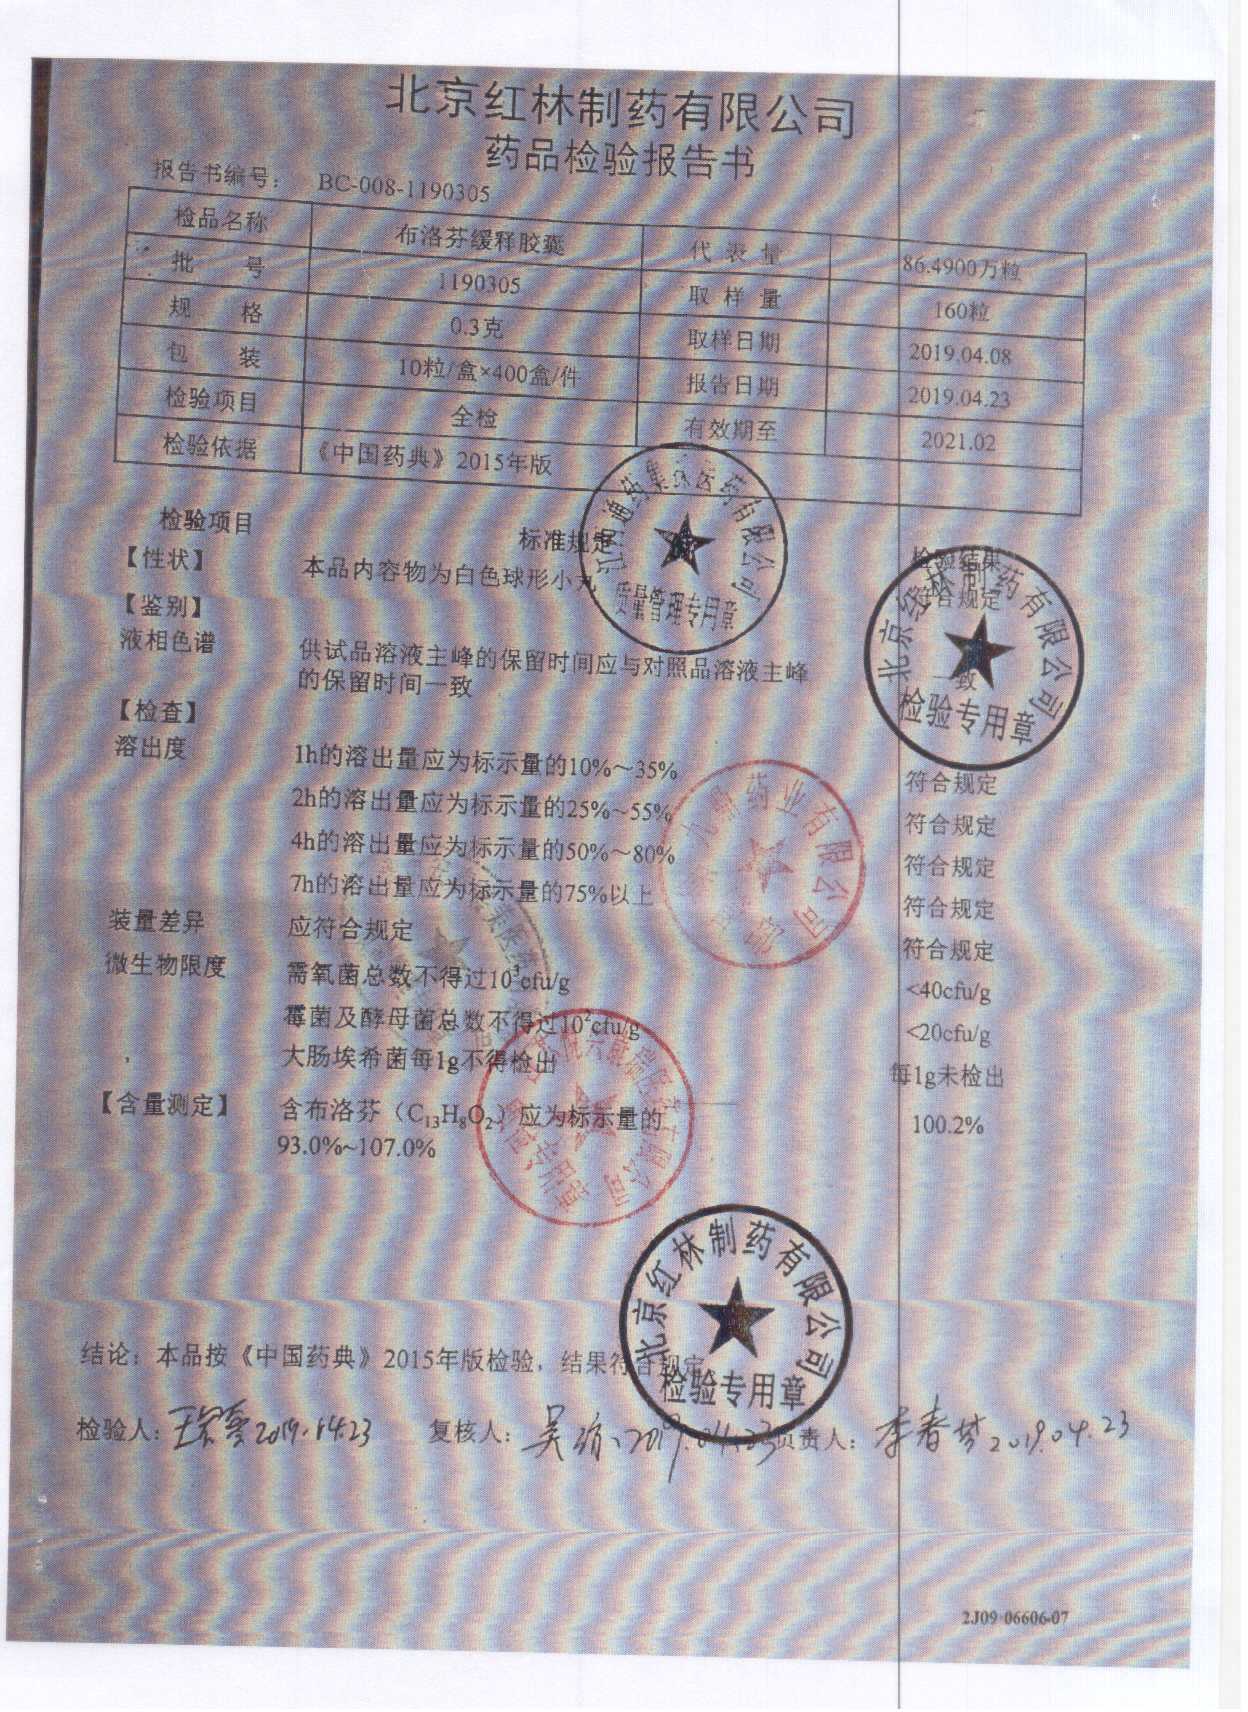 北京红林制药有限公司
药品检验报告书
报告书编号： BC-008-1190305
检品名称 布洛芬缓释胶囊 代表量 86.4900万粒
批号 1190305 取样量 160粒
规格 0.3克 取样日期 2019.04.08
包装 10粒/盒×400盒/件 报告日期 2019.04.23
检验项目 全检 有效期至 2021.02
检验依据 《中国药典》2015年版
检验项目 标准规定 检验结果
【性状】 本品内容物为白色球形小丸 符合规定
【鉴别】
液相色谱 供试品溶液主峰的保留时间应与对照品溶液主峰
的保留时间一致 一致
【检查】
溶出度 1h的溶出量应为标示量的10%～35% 符合规定
2h的溶出量应为标示量的25%～55% 符合规定
4h的溶出量应为标示量的50%～80% 符合规定
7h的溶出量应为标示量的75%以上 符合规定
装量差异 应符合规定 符合规定
微生物限度 需氧菌总数不得过10³cfu/g <40cfu/g
霉菌及酵母菌总数不得过10²cfu/g <20cfu/g
大肠埃希菌每1g不得检出 每1g未检出
【含量测定】 含布洛芬（C₁₃H₈O₂）应为标示量的 100.2%
93.0%~107.0%
医药有限公司
质量管理专用章
北京红林制药有限公司
检验专用章
药业有限公司
北京红林制药有限公司
检验专用章
结论：本品按《中国药典》2015年版检验，结果符合规定
检验人： 2019.04.23 复核人： 吴 2019.04.23 负责人： 李春 2019.04.23
2J09-06606-07